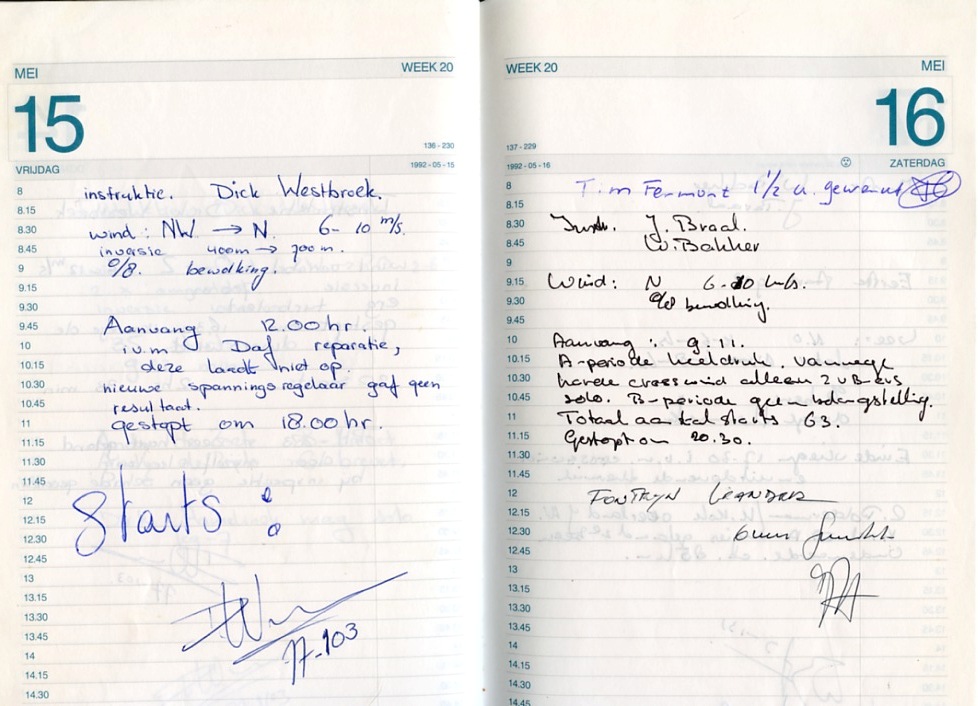 MEI
WEEK 20
15
136 - 230
VRIJDAG
1992 - 05 - 15
8
instruktie. Dick Westbroek.
8.15
8.30
wind: NW → N. 6 - 10 m/s.
8.45
inversie 400m → 700 m.
9
0/8. bewolking.
9.15
9.30
9.45
Aanvang 12.00 hr.
10
i.v.m Daf reparatie,
10.15
deze laadt niet op.
10.30
nieuwe spanningsregelaar gaf geen
10.45
resultaat.
11
gestopt om 18.00 hr.
11.15
11.30
11.45
12
Starts:
12.15
12.30
12.45
13
13.15
13.30
13.45
17-103
14
14.15
14.30
WEEK 20
MEI
16
137 - 229
1992 - 05 - 16
ZATERDAG
8
Tim Fermont 1 1/2 u.
8.15
8.30
J. Braal.
8.45
W. Bakker
9
9.15
Wind: N 6-10 m/s.
9.30
0/8 bewolking.
9.45
10
Aanvang: 9.11.
10.15
A-periode Vanwege
10.30
harde crosswind alleen 2
10.45
solo. B-periode geen belangstelling.
11
Totaal aantal starts 63.
11.15
Gestopt om 20.30.
11.30
11.45
12
12.15
12.30
12.45
13
13.15
13.30
13.45
14
14.15
14.30
14.45